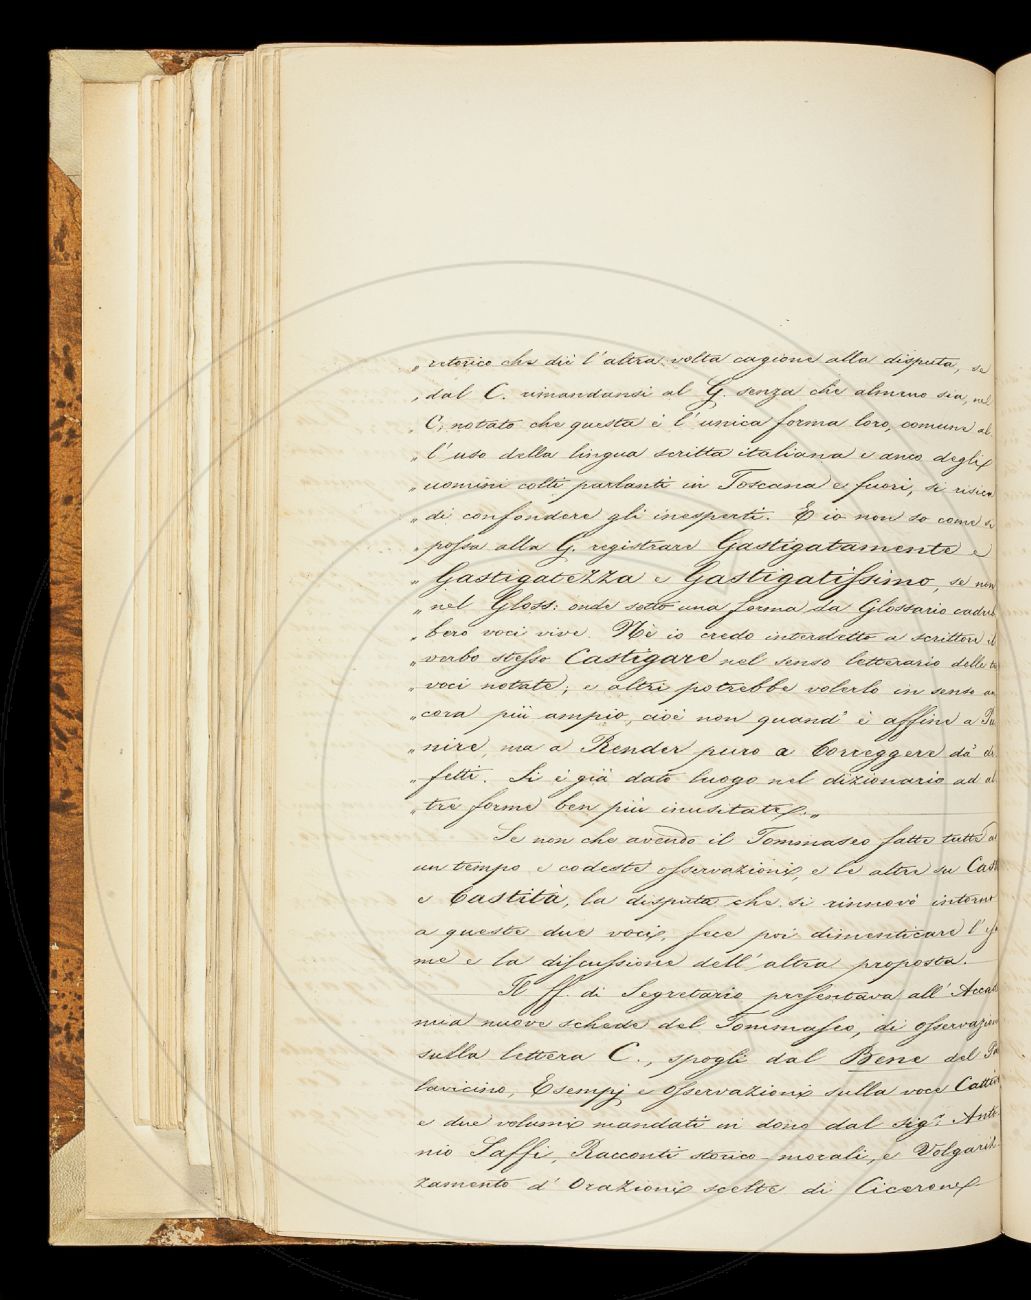 „ retorico che diè l'altra volta cagione alla disputa, se
„ dal C. rimandansi al G. senza che almeno sia, nel
„ C, notato che questa è l'unica forma loro, comune al
„ l'uso della lingua scritta italiana e anco degli
„ uomini colti parlanti in Toscana e fuori, si risica
„ di confondere gli inesperti. E io non so come si
„ possa alla G. registrare Gastigatamente e
„ Gastigatezza e Gastigatissimo, se non
„ nel Gloss: onde sotto una forma da Glossario cadreb
„ bero voci vive. Nè io credo interdetto a scrittore il
„ verbo stesso Castigare nel senso letterario delle tre
„ voci notate; e altri potrebbe volerlo in senso an
„ cora più ampio, cioè non quand' è affine a Pu
„ nire ma a Render puro a Correggere da' di
„ fetti. Si è già dato luogo nel dizionario ad al
„ tre forme ben più inusitate. „
Se non che avendo il Tommaseo fatte tutte a
un tempo e codeste osservazioni, e le altre su Cast
e Castità, la disputa che si rinnovò intorno
a queste due voci, fece poi dimenticare l'esa
me e la discussione dell'altra proposta.
Il ff. di Segretario presentava all'Accade
mia nuove schede del Tommaseo, di osservazioni
sulla lettera C., spogli dal Bene del Pal
lavicino, Esempj e Osservazioni sulla voce Cattivo
e due volumi mandati in dono dal sig.r Anto
nio Saffi, Racconti storico-morali, e Volgariz-
zamento d'Orazioni scelte di Cicerone